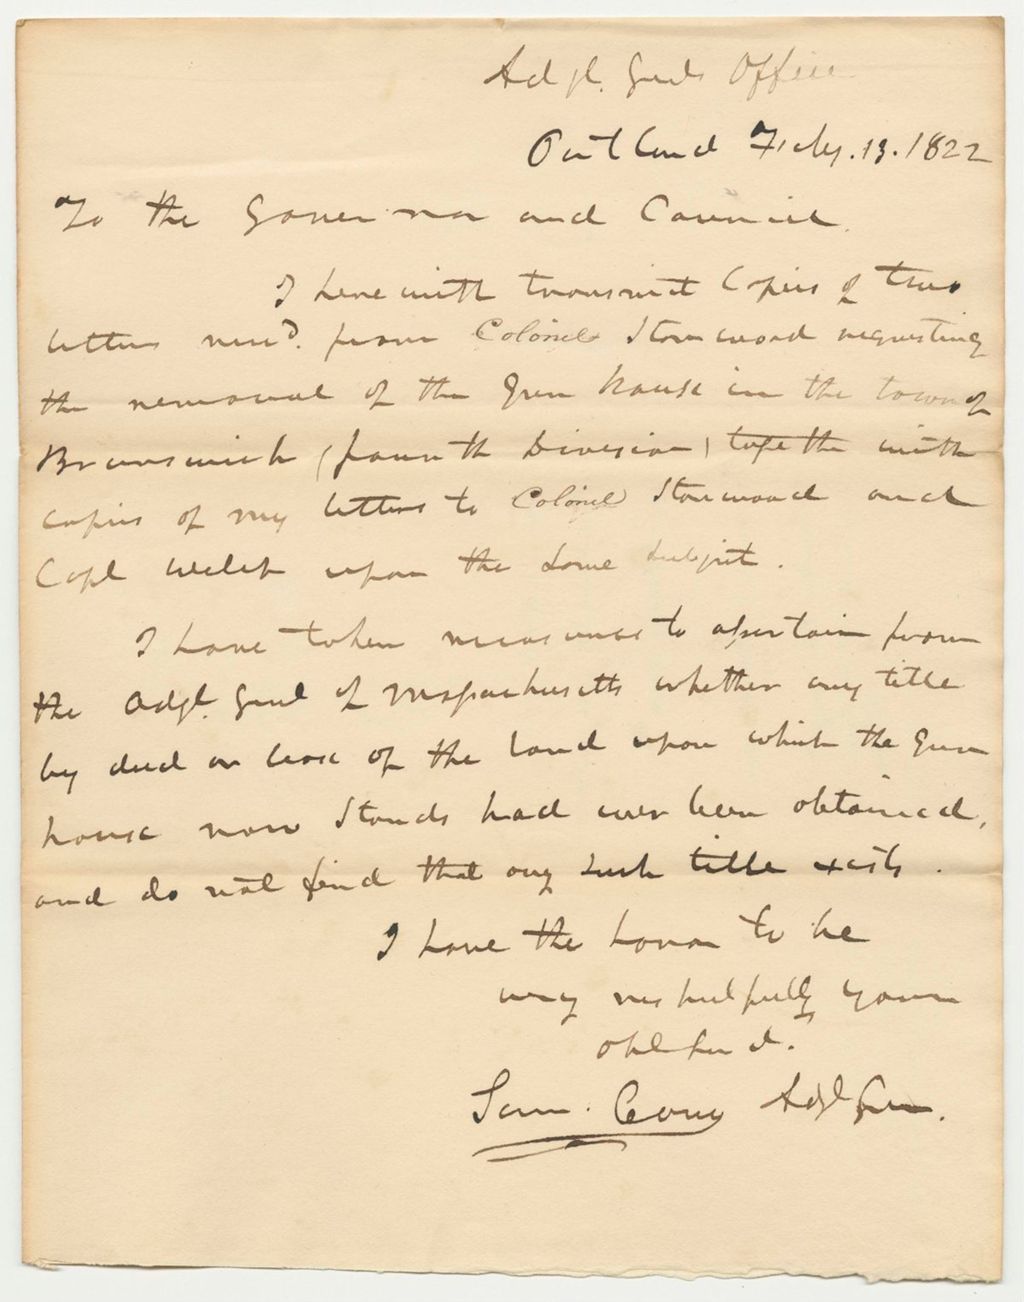 Adjt. Genls Office
Portland Feby. 13. 1822
To the Governor and Council.
I herewith transmit Copies of two
letters recd. from Colonel Stanwood requesting
the removal of the Gun house in the town of
Brunswick (fourth Division) together with
copies of my letters to Colonel Stanwood and
Capt Welch upon the same subject.
I have taken measures to assertain from
the Adjt. Genl of Massachusetts whether any title
by deed or lease of the land upon which the Gun
house now stands had ever been obtained,
and do not find that any such title exists.
I have the honor to be
very respectfully your
obt Serv't.
Sam. Cony Adjt Gen.